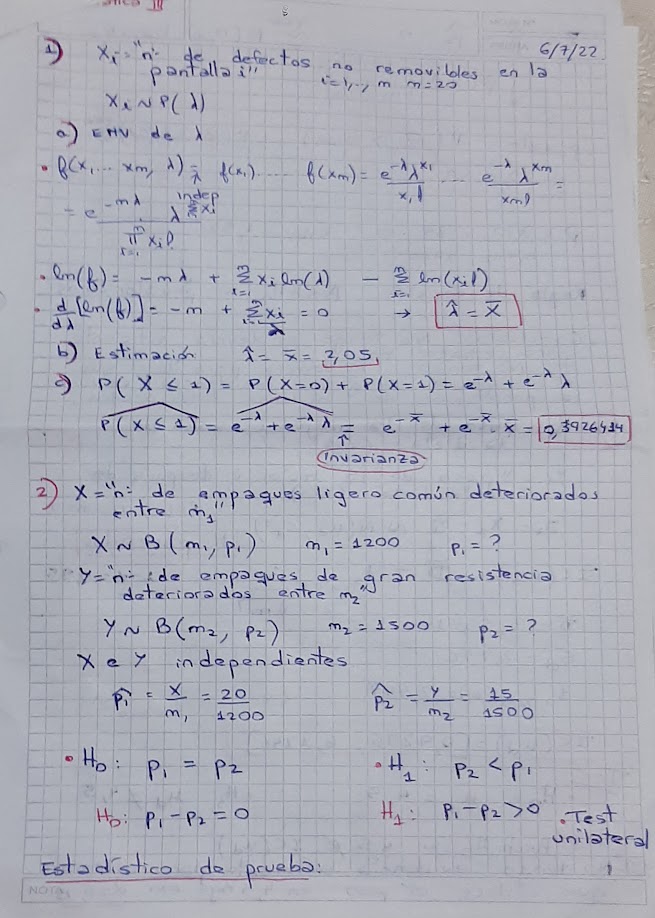 ática III
6/7/22
1) Xi = "nº de defectos no removibles en la
pantalla i" i=1,.., m m=20
Xi ~ P(λ)
a) EMV de λ
• f(x1, ... xm, λ) = f(x1) .... f(xm) = e^-λ λ^x1 / x1! .... e^-λ λ^xm / xm! =
indep
= e^-mλ λ^Σxi / ∏ i=1 m xi!
• ln(f) = -mλ + Σ i=1 m xi ln(λ) - Σ i=1 m ln(xi!)
• d/dλ [ln(f)] = -m + Σ i=1 m xi / λ = 0 → λ̂ = X̄
b) Estimación λ̂ = x̄ = 2,05
c) P(X ≤ 1) = P(X=0) + P(X=1) = e^-λ + e^-λ λ
P(X ≤ 1) = e^-λ + e^-λ λ = e^-x̄ + e^-x̄ . x̄ = 0,3926414
↑
Invarianza
2) X = "nº de empaques ligero común deteriorados
entre m1"
X ~ B(m1, p1) m1 = 1200 p1 = ?
Y = "nº de empaques de gran resistencia
deteriorados entre m2"
Y ~ B(m2, p2) m2 = 1500 p2 = ?
X e Y independientes
p̂1 = X/m1 = 20/1200 p̂2 = Y/m2 = 15/1500
• H0: p1 = p2 • H1: p2 < p1
H0: p1 - p2 = 0 H1: p1 - p2 > 0 • Test
unilateral
Estadístico de prueba:
NOTA